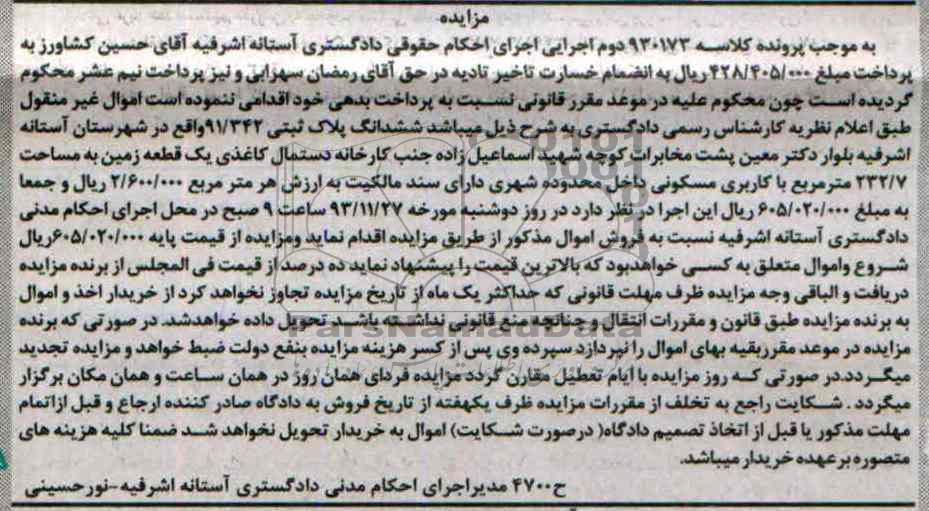 مزایده
به موجب پرونده کلاسه ۹۳۰۱۷۳ دوم اجرایی اجرای احکام حقوقی دادگستری آستانه اشرفیه آقای حسین کشاورز به
پرداخت مبلغ ۴۲۸/۴۰۵/۰۰۰ ریال به انضمام خسارت تاخیر تادیه در حق آقای رمضان سهرابی و نیز پرداخت نیم عشر محکوم
گردیده است چون محکوم علیه در موعد مقرر قانونی نسبت به پرداخت بدهی خود اقدامی ننموده است اموال غیر منقول
طبق اعلام نظریه کارشناس رسمی دادگستری به شرح ذیل میباشد ششدانگ پلاک ثبتی ۹۱/۳۴۲ واقع در شهرستان آستانه
اشرفیه بلوار دکتر معین پشت مخابرات کوچه شهید اسماعیل زاده جنب کارخانه دستمال کاغذی یک قطعه زمین به مساحت
۲۳۲/۷ مترمربع با کاربری مسکونی داخل محدوده شهری دارای سند مالکیت به ارزش هر متر مربع ۲/۶۰۰/۰۰۰ ریال و جمعا
به مبلغ ۶۰۵/۰۲۰/۰۰۰ ریال این اجرا در نظر دارد در روز دوشنبه مورخه ۹۳/۱۱/۲۷ ساعت ۹ صبح در محل اجرای احکام مدنی
دادگستری آستانه اشرفیه نسبت به فروش اموال مذکور از طریق مزایده اقدام نماید ومزایده از قیمت پایه ۶۰۵/۰۲۰/۰۰۰ریال
شروع واموال متعلق به کسی خواهدبود که بالاترین قیمت را پیشنهاد نماید ده درصد از قیمت فی المجلس از برنده مزایده
دریافت و الباقی وجه مزایده ظرف مهلت قانونی که حداکثر یک ماه از تاریخ مزایده تجاوز نخواهد کرد از خریدار اخذ و اموال
به برنده مزایده طبق قانون و مقررات انتقال و چنانچه منع قانونی نداشته باشد تحویل داده خواهدشد. در صورتی که برنده
مزایده در موعد مقرربقیه بهای اموال را نپردازد سپرده وی پس از کسر هزینه مزایده بنفع دولت ضبط خواهد و مزایده تجدید
میگردد.در صورتی که روز مزایده با ایام تعطیل مقارن گردد مزایده فردای همان روز در همان ساعت و همان مکان برگزار
میگردد . شکایت راجع به تخلف از مقررات مزایده ظرف یکهفته از تاریخ فروش به دادگاه صادر کننده ارجاع و قبل ازاتمام
مهلت مذکور یا قبل از اتخاذ تصمیم دادگاه( درصورت شکایت) اموال به خریدار تحویل نخواهد شد ضمنا کلیه هزینه های
متصوره برعهده خریدار میباشد.
ح۴۷۰۰ مدیراجرای احکام مدنی دادگستری آستانه اشرفیه-نورحسینی
ParsNamadData